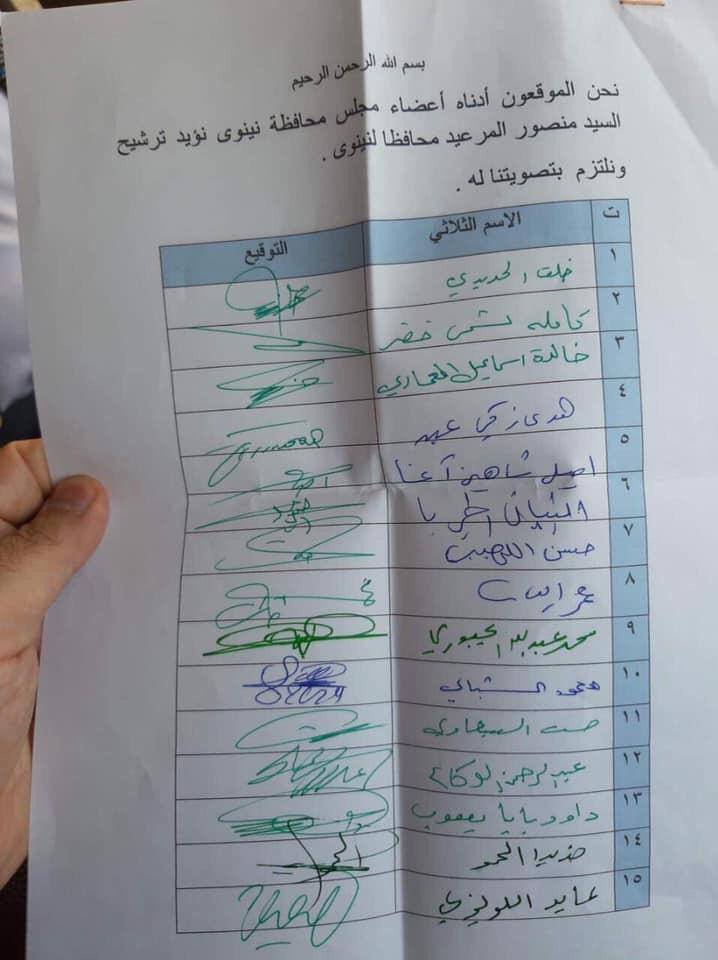 بسم الله الرحمن الرحيم
نحن الموقعون أدناه أعضاء مجلس محافظة نينوى نؤيد ترشيح
السيد منصور المرعيد محافظا لنينوى .
ونلتزم بتصويتنا له .
ت الاسم الثلاثي التوقيع
١ خلف الحديدي
٢ كامله شمس خضر
٣ خالدة اسماعيل
٤ هدى زكي عبد
٥ اصيل شاهين آغا
٦ الجربا
٧ حسن اللهيب
٨ عمر
٩ محمد عبدالله الجبوري
١٠ محمود الشبالي
2024
١١ السبعاوي
١٢ عبدالرحمن الوكاع
١٣ داود بابا يعقوب
١٤ الحمو
١٥ عايد اللويزي